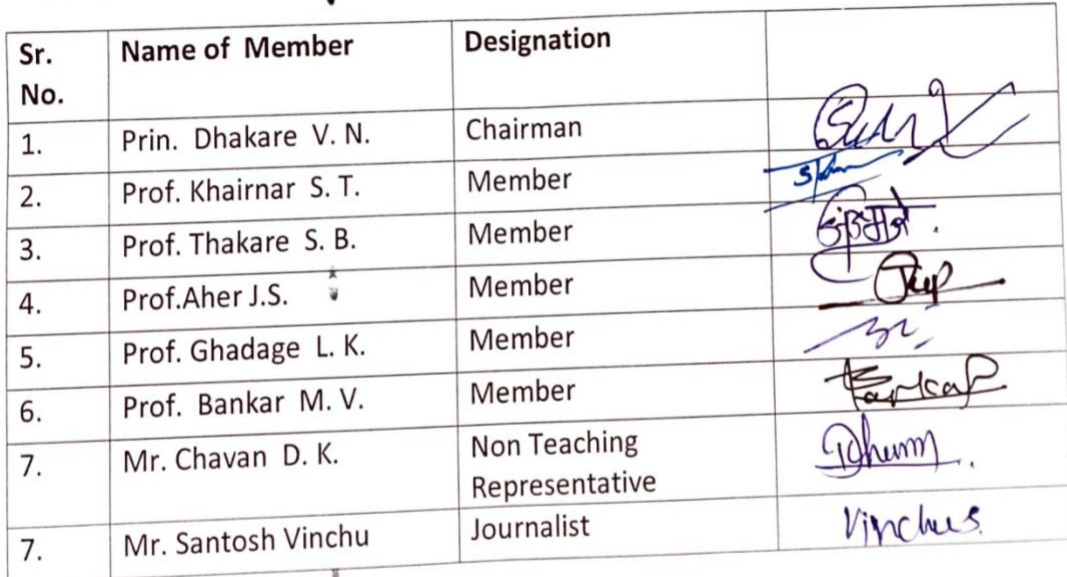 Sr. No. Name of Member Designation
1. Prin. Dhakare V. N. Chairman
2. Prof. Khairnar S. T. Member
3. Prof. Thakare S. B. Member
4. Prof.Aher J.S. Member
5. Prof. Ghadage L. K. Member
6. Prof. Bankar M. V. Member
7. Mr. Chavan D. K. Non Teaching Representative
7. Mr. Santosh Vinchu Journalist Vinchus